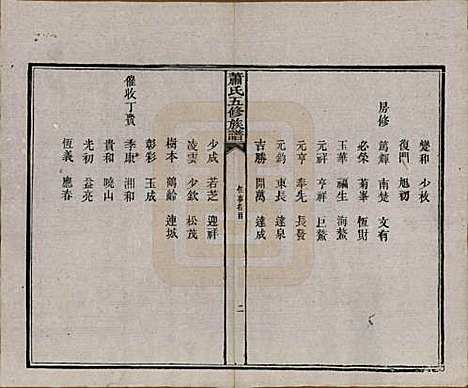 燮和 少枚
復門 旭初
房修
篤輝 南楚 文有
必榮 菊峯 恆財
玉華 福生 海鰲
元祥 亨祥 巨鰲
元亨 奉先 長發
元鈞 東長 達泉
吉勝 開萬 達成
蕭氏五修族譜
任事名目
二
少成 若芝 迎祥
凌雲 少欽 松茂
樹本 鶴齡 連城
彰彩 玉成
催收丁費
季康 湘和
貴和 曉山
光初 益亮
恆義 應春